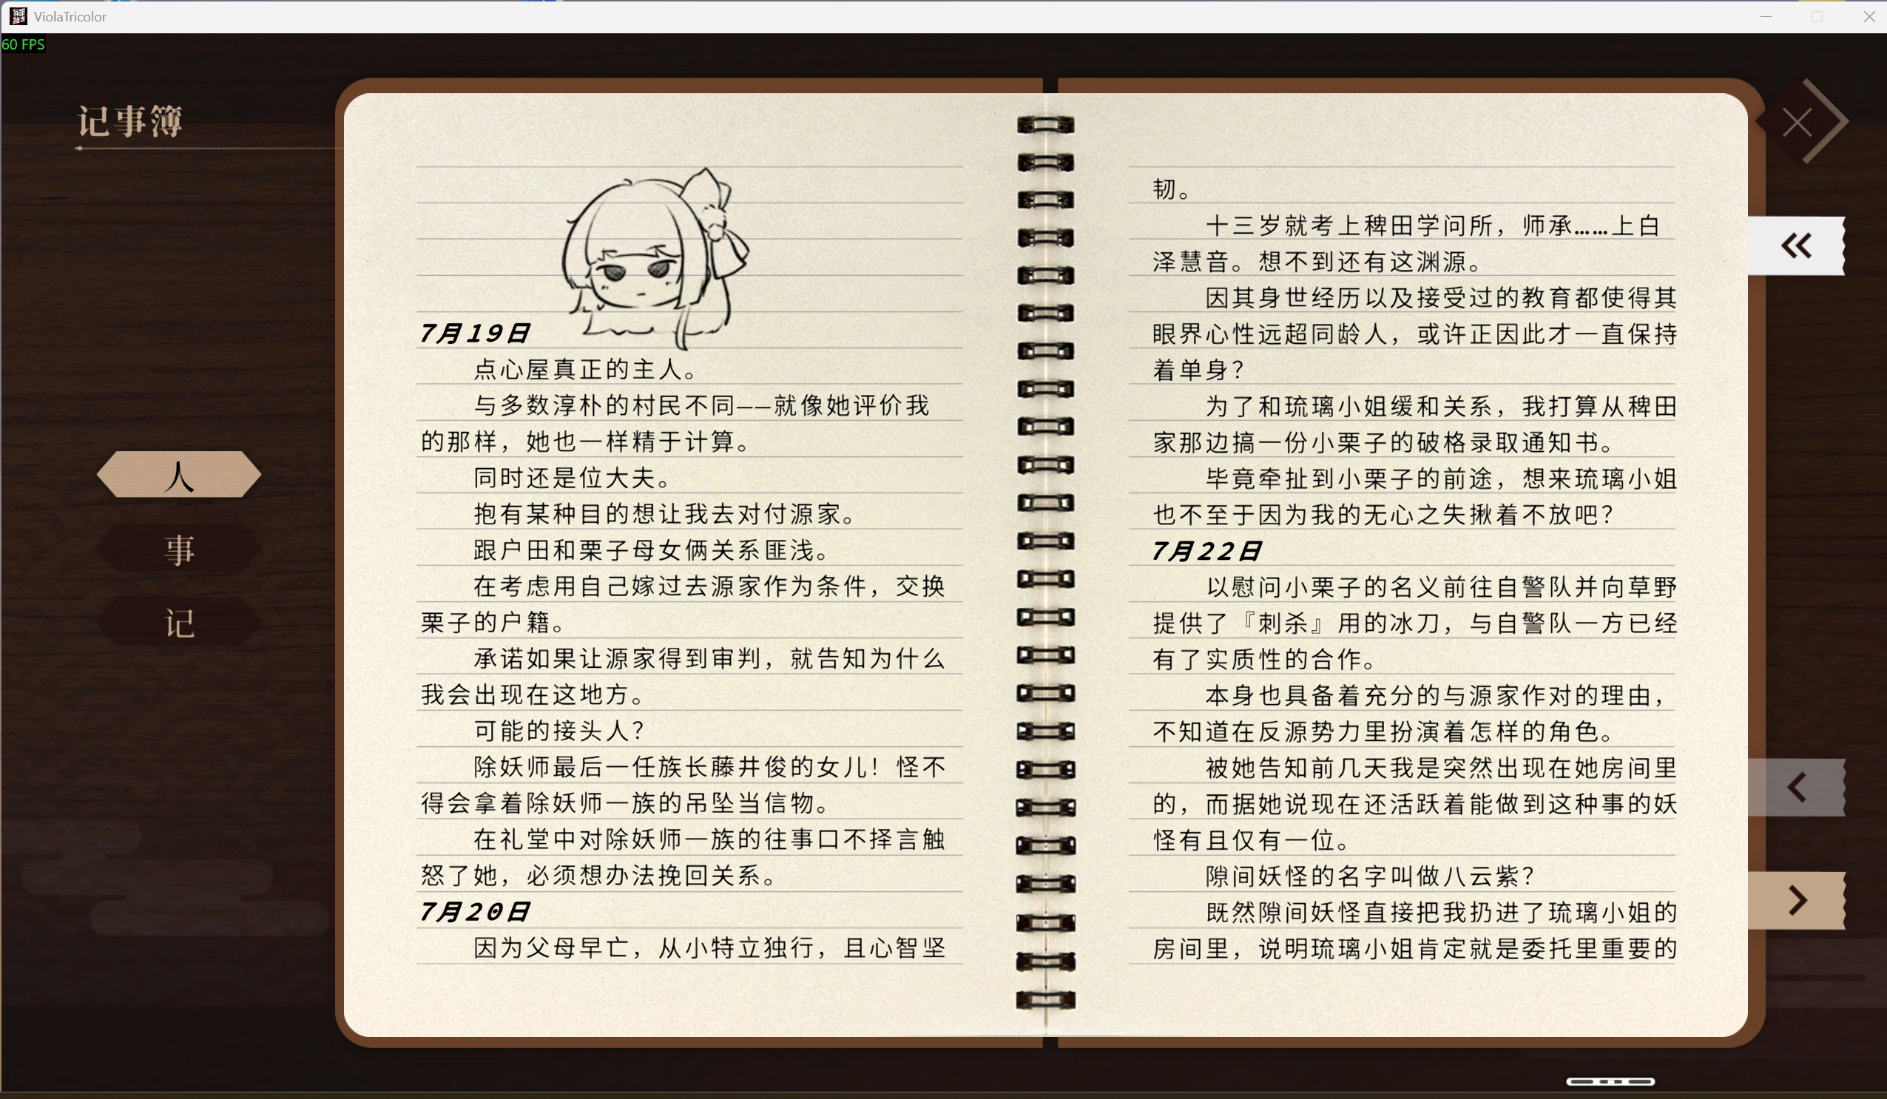 ViolaTricolor
60 FPS
记事簿
人
事
记
7月19日
点心屋真正的主人。
与多数淳朴的村民不同——就像她评价我
的那样，她也一样精于计算。
同时还是位大夫。
抱有某种目的想让我去对付源家。
跟户田和栗子母女俩关系匪浅。
在考虑用自己嫁过去源家作为条件，交换
栗子的户籍。
承诺如果让源家得到审判，就告知为什么
我会出现在这地方。
可能的接头人？
除妖师最后一任族长藤井俊的女儿！怪不
得会拿着除妖师一族的吊坠当信物。
在礼堂中对除妖师一族的往事口不择言触
怒了她，必须想办法挽回关系。
7月20日
因为父母早亡，从小特立独行，且心智坚
韧。
十三岁就考上稗田学问所，师承……上白
泽慧音。想不到还有这渊源。
因其身世经历以及接受过的教育都使得其
眼界心性远超同龄人，或许正因此才一直保持
着单身？
为了和琉璃小姐缓和关系，我打算从稗田
家那边搞一份小栗子的破格录取通知书。
毕竟牵扯到小栗子的前途，想来琉璃小姐
也不至于因为我的无心之失揪着不放吧？
7月22日
以慰问小栗子的名义前往自警队并向草野
提供了『刺杀』用的冰刀，与自警队一方已经
有了实质性的合作。
本身也具备着充分的与源家作对的理由，
不知道在反源势力里扮演着怎样的角色。
被她告知前几天我是突然出现在她房间里
的，而据她说现在还活跃着能做到这种事的妖
怪有且仅有一位。
隙间妖怪的名字叫做八云紫？
既然隙间妖怪直接把我扔进了琉璃小姐的
房间里，说明琉璃小姐肯定就是委托里重要的